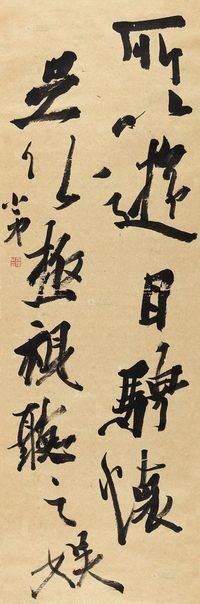 所以游目騁懷
足以極視聽之娱